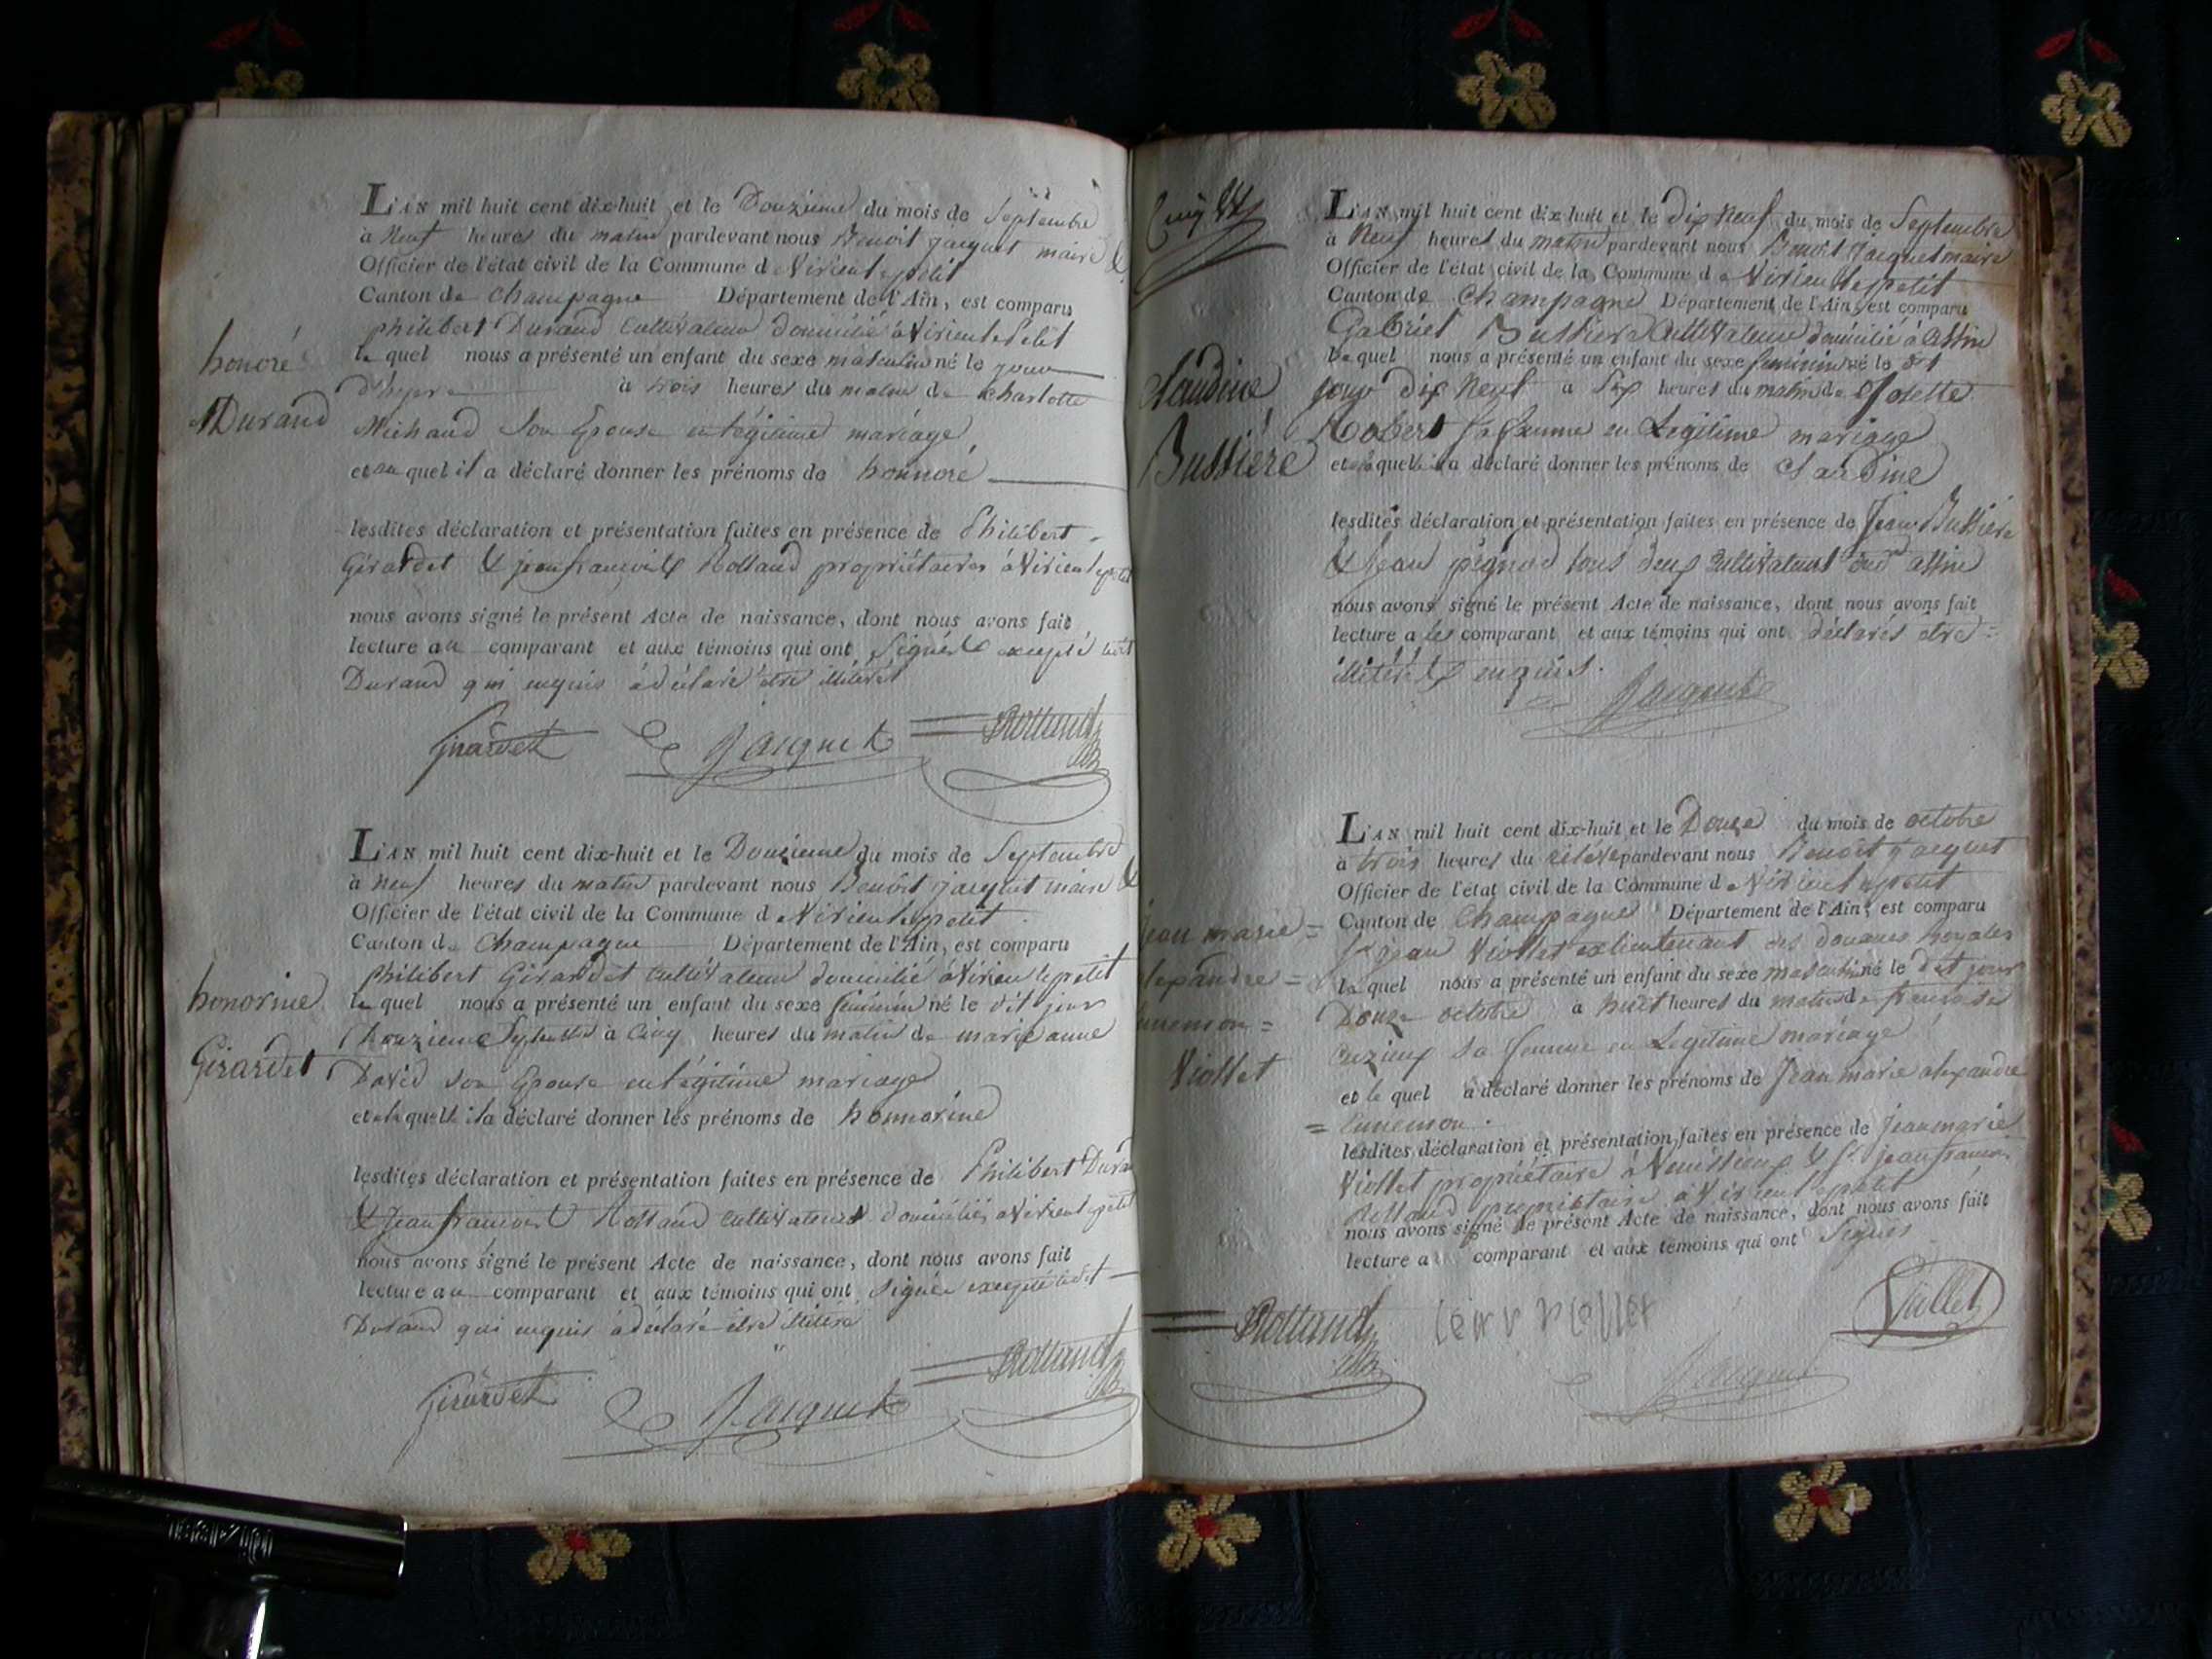 honoré
Durand
L'AN mil huit cent dix-huit et le Douzieme du mois de Septembre
à neuf heures du matin pardevant nous Benoit jacquet maire &
Officier de l'état civil de la Commune de Virieu le petit
Canton de Champagne Département de l'Ain, est comparu
philibert Durand Cultivateur domicilié à Virieu le Petit
le quel nous a présenté un enfant du sexe masculin né le jour
d'hyere à trois heures du matin de Charlotte
Michaud Son Epouse en légitime mariage
et au quel il a déclaré donner les prénoms de honnoré
lesdites déclaration et présentation faites en présence de Philibert
Girardet & jean francois Rolland propriétaires à Virieu le petit
nous avons signé le présent Acte de naissance, dont nous avons fait
lecture au comparant et aux témoins qui ont Signés excepté ledit
Durand qui enquis à déclaré être illitéré
Girardet Jacquet Rolland
honorine
Girardet
L'AN mil huit cent dix-huit et le Douzieme du mois de Septembre
à neuf heures du matin pardevant nous Benoit jacquet maire &
Officier de l'état civil de la Commune de Virieu le petit
Canton de Champagne Département de l'Ain, est comparu
philibert Girardet Cultivateur domicilié à Virieu le petit
le quel nous a présenté un enfant du sexe féminin né le dit jour
Douzieme Septembre à Cinq heures du matin de marie anne
David son Epouse en légitime mariage
et a la quelle il a déclaré donner les prénoms de honnorine
lesdites déclaration et présentation faites en présence de Philibert Durand
& Jean francois Rolland Cultivateurs domiciliés à Virieu le petit
nous avons signé le présent Acte de naissance, dont nous avons fait
lecture au comparant et aux témoins qui ont signés excepté ledit
Durand qui enquis à déclaré être illitéré
Girardet Jacquet Rolland
Claudine
Bussiére
L'AN mil huit cent dix-huit et le dix neuf du mois de Septembre
à Neuf heures du matin pardevant nous Benoit Jacquet maire
Officier de l'état civil de la Commune de Virieu le petit
Canton de Champagne Département de l'Ain, est comparu
Gabriel Bussiere Cultivateur domicilié à assin
le quel nous a présenté un enfant du sexe féminin né le dit
jour dix neuf à Six heures du matin de Josette
Robert sa femme en Legitime mariage
et a la quelle il a déclaré donner les prénoms de Claudine
lesdites déclaration et présentation faites en présence de Jean Bussiere
& Jean pignod tous deux Cultivateurs assin
nous avons signé le présent Acte de naissance, dont nous avons fait
lecture a les comparant et aux témoins qui ont déclarés etre =
illitérés enquis.
Jacquet
jean marie =
alexandre =
ennemon =
Viollet
L'AN mil huit cent dix-huit et le Douze du mois de octobre
à trois heures du relévé pardevant nous Benoit Jacquet
Officier de l'état civil de la Commune de Virieu le petit
Canton de Champagne Département de l'Ain, est comparu
Sr jean Viollet ex lieutenant des douanes Royales
le quel nous a présenté un enfant du sexe masculin né le dit jour
Douze octobre à huit heures du matin de francoise
Cuzieux Sa femme en Legitime mariage
et le quel a déclaré donner les prénoms de Jean marie alexandre
= Ennemon.
lesdites déclaration et présentation faites en présence de jean marie
Viollet propriétaire à & Sr. jean francois
Rolland propriétaire à Virieu le petit
nous avons signé le présent Acte de naissance, dont nous avons fait
lecture a comparant et aux témoins qui ont Signés
Rolland jean viollet Viollet
Jacquet